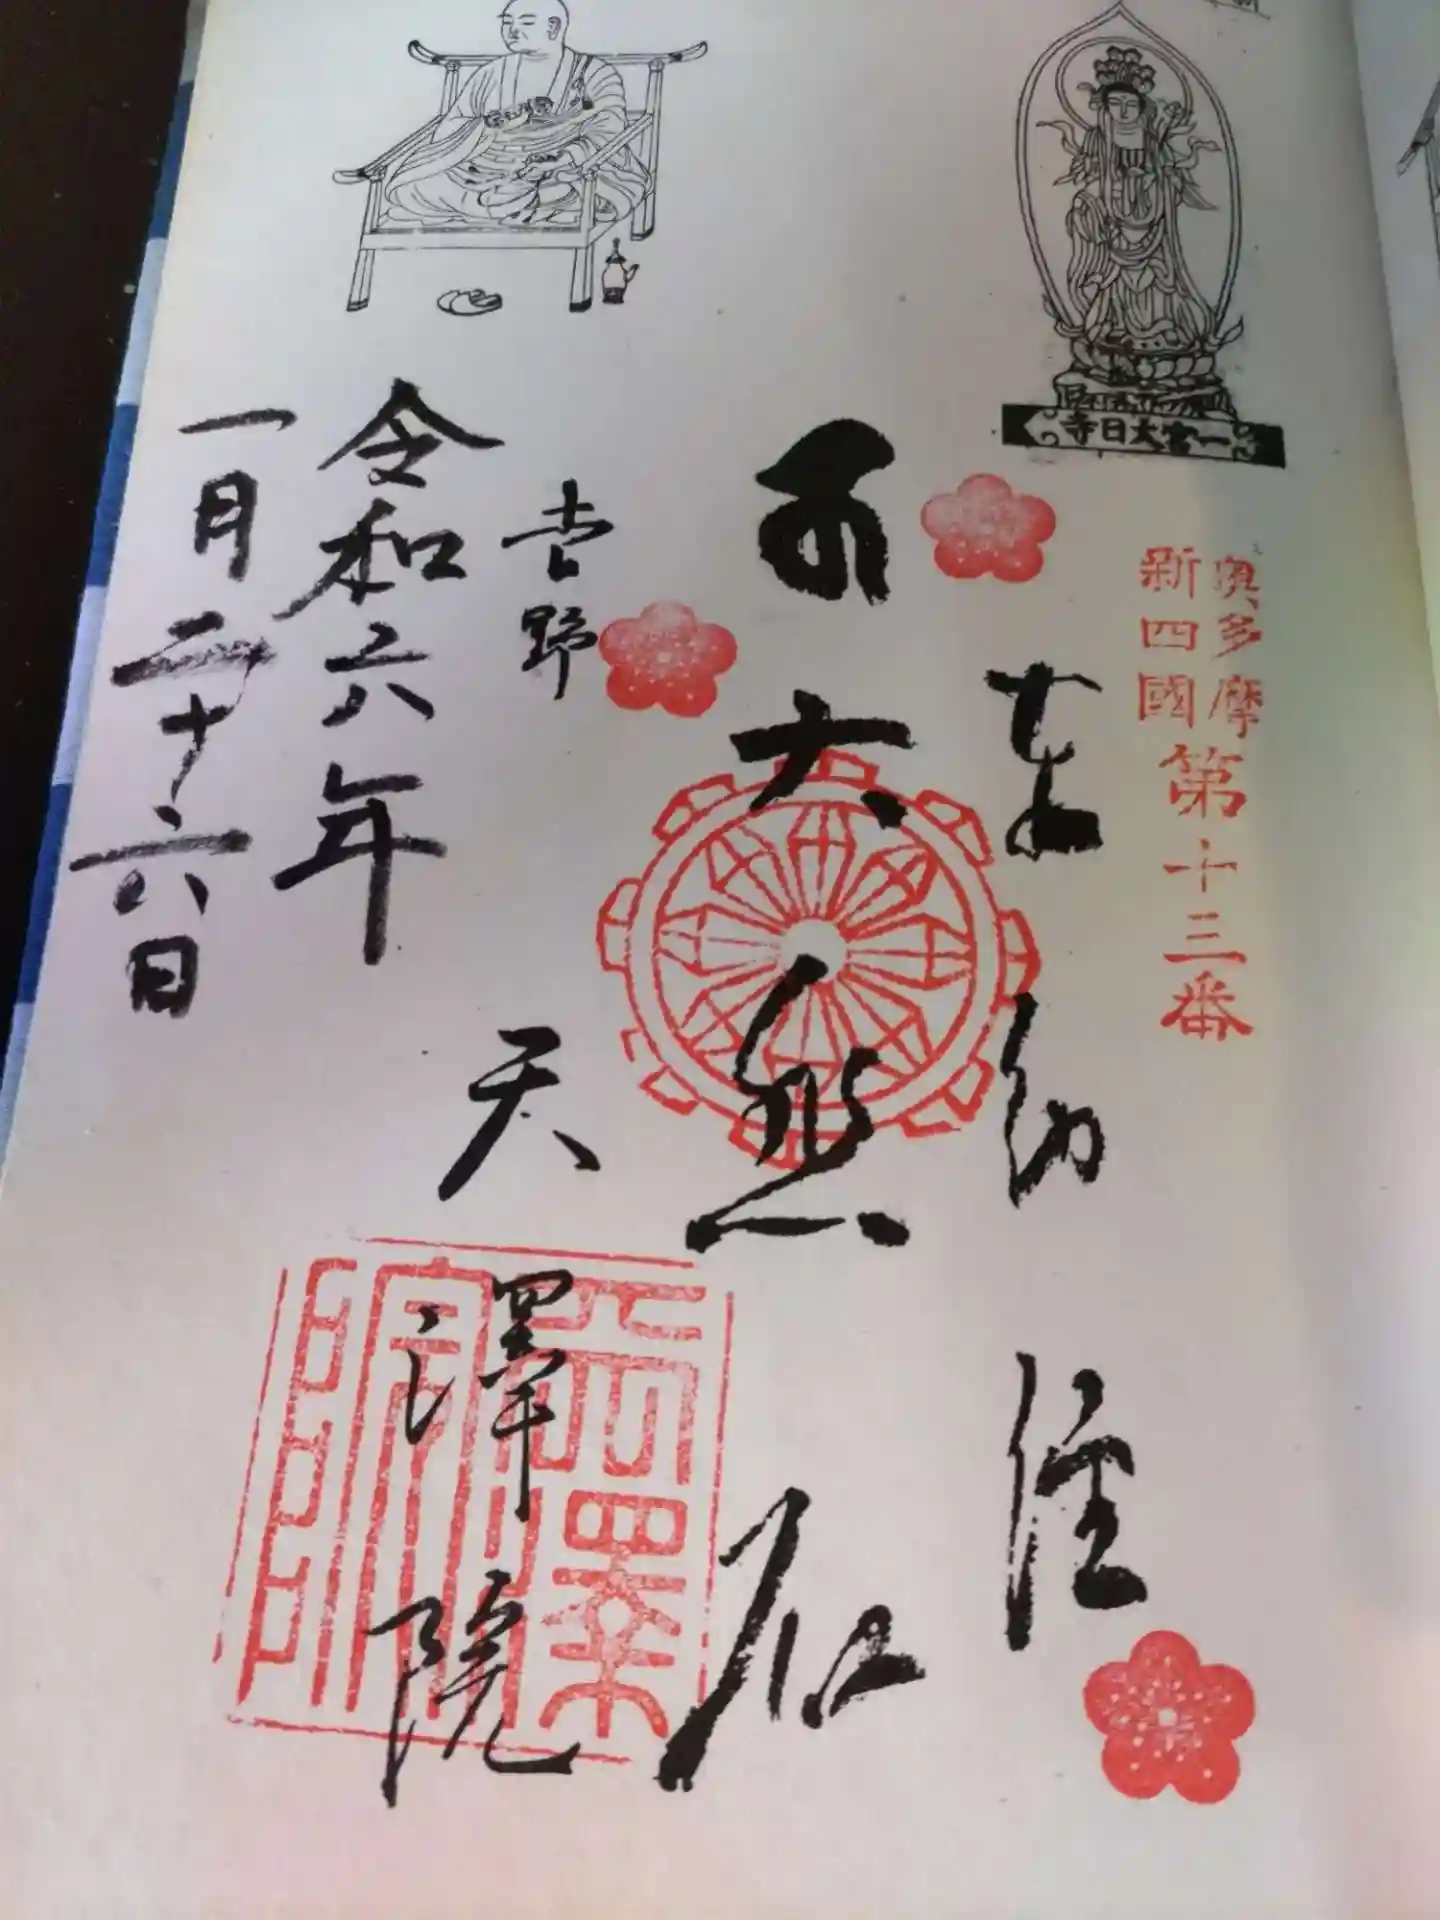 一宮大日寺
奥多摩
新四國
第十三番
奉納経
大悲殿
吉野
天澤院
令和六年
一月二十六日